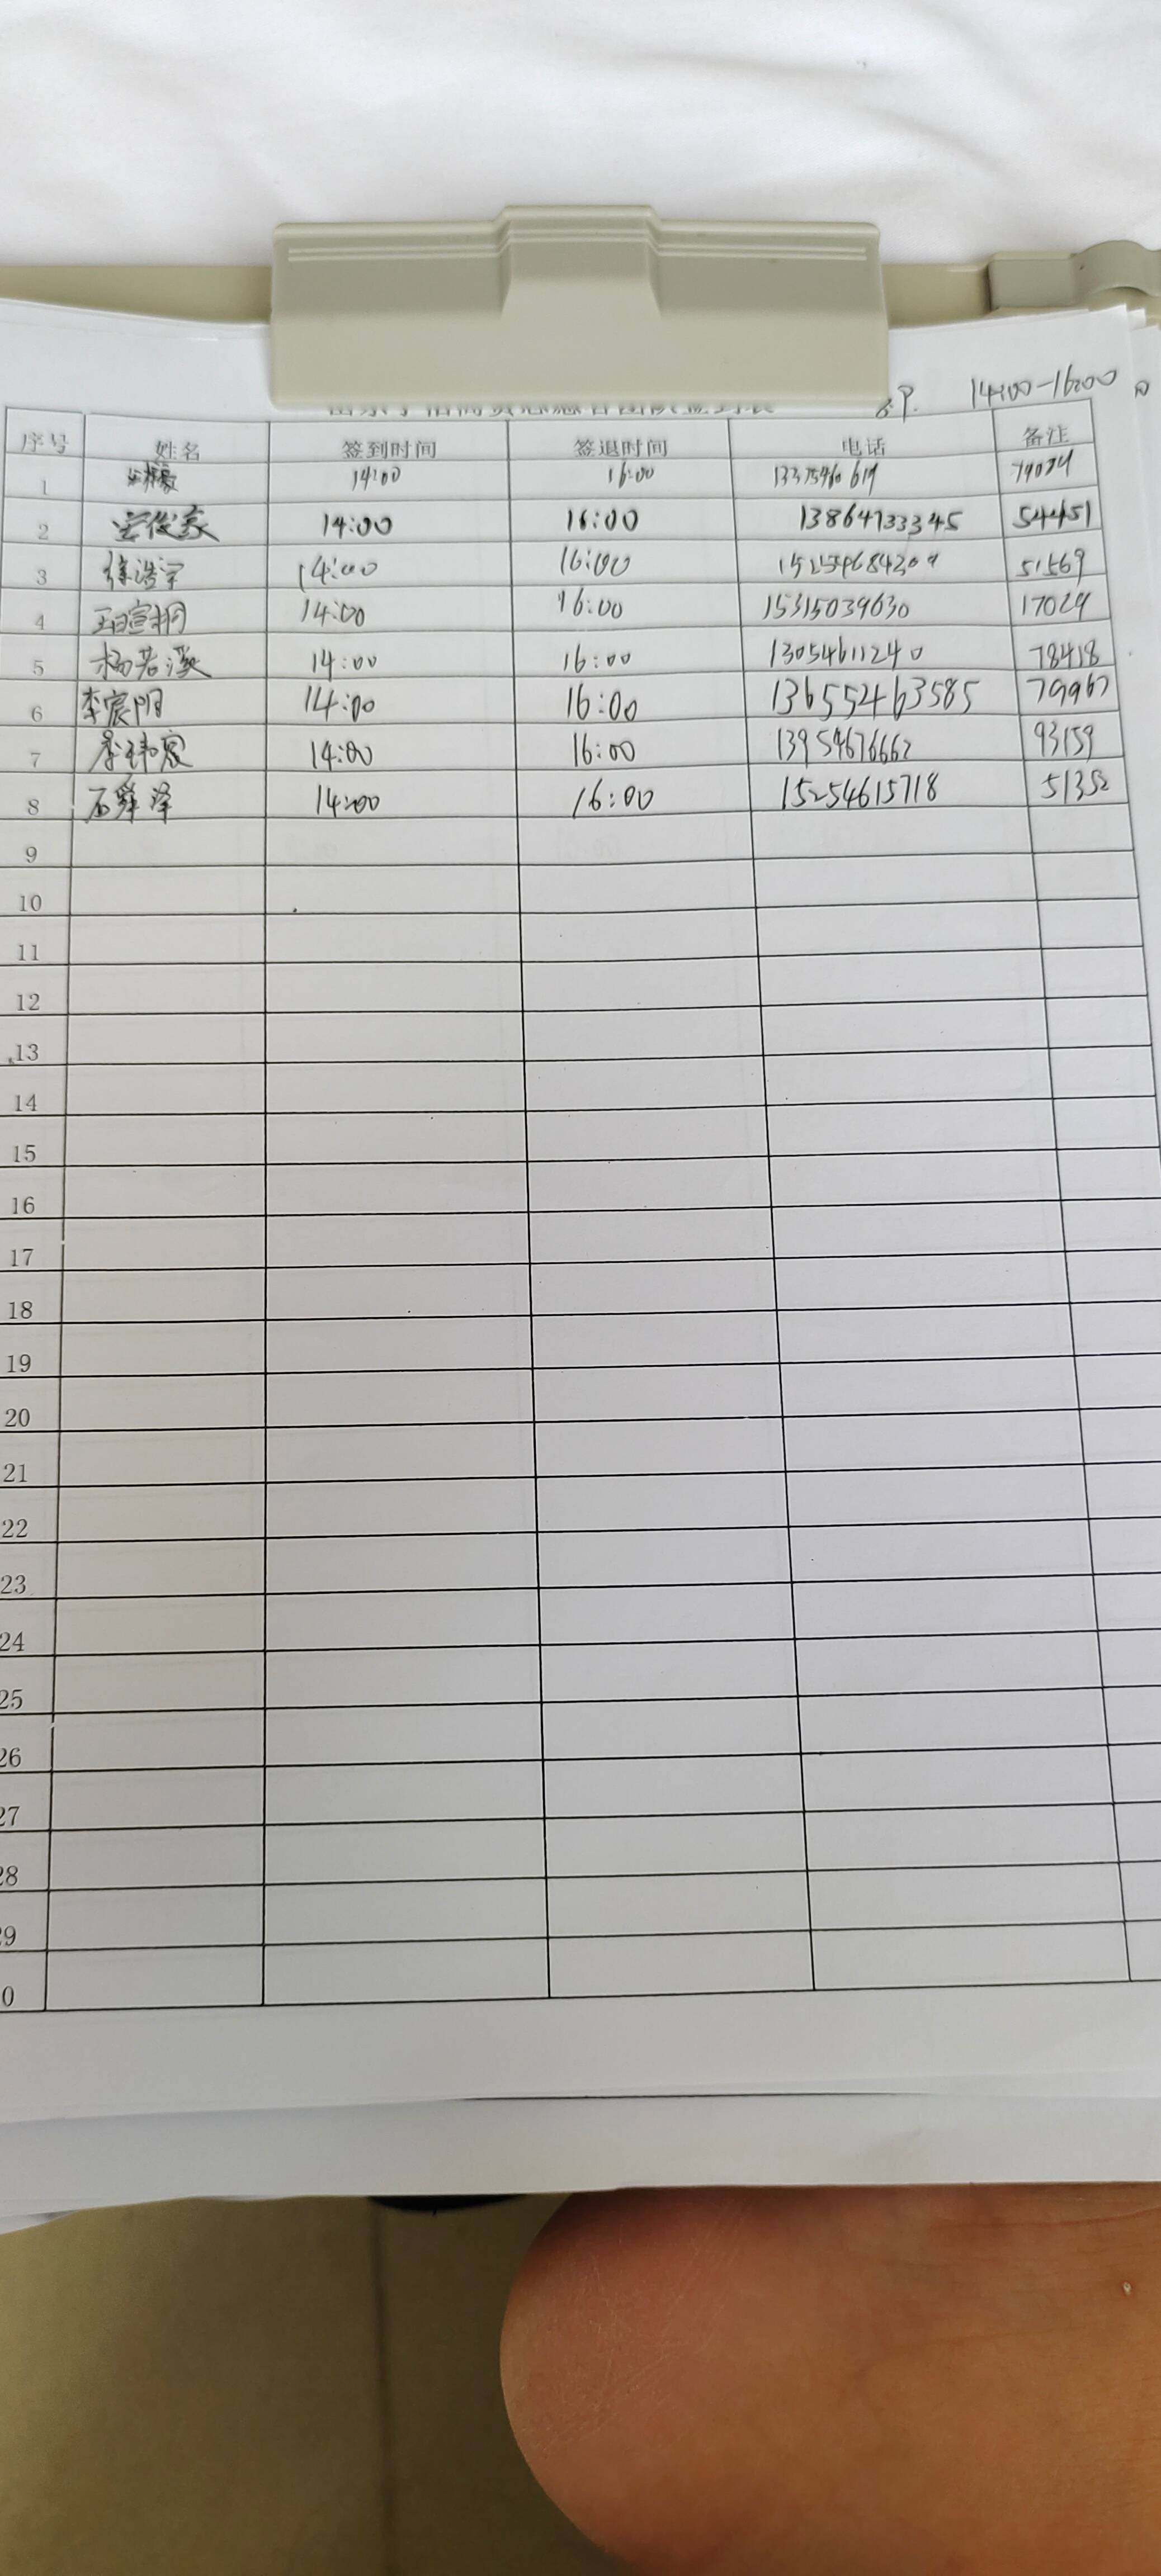 8.9. 14:00-16:00
序号 姓名 签到时间 签退时间 电话 备注
1 14:00 16:00 79034
2 安俊豪 14:00 16:00 13864733345 54451
3 徐浩宇 14:00 16:00 51569
4 14:00 16:00 15315039630 17029
5 杨若溪 14:00 16:00 13054611240 78418
6 李宸阳 14:00 16:00 136552463585 79967
7 14:00 16:00 13954676662 93159
8 石舜泽 14:00 16:00 15254615718 51352
9
10
11
12
13
14
15
16
17
18
19
20
21
22
23
24
25
26
27
28
29
0